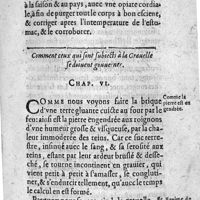 à la saison & au pays, auec vne opiate cordia-
le, à fin de purger tout le corps à bon escient,
& corriger apres l'intemperature de l'esto-
mac, & le corroborer.
Comment ceux qui sont subiects à la Grauelle
se doiuent gouuerner.
CHAP. VI.
COMME nous voyons faire la brique
d'vne terre gluante cuicte au four par le
feu: ainsi est la pierre engendrée aux roignons
d'vne humeur grosse & visqueuse, par la cha-
leur immoderée des reins. Car ce suc terre-
stre, insinué auec le sang, & sa serosité aux
reins, estant par leur ardeur bruslé & deseché,
se tourne incontinent en grauier, qui
petit à petit s'amassant, se congluti-
ner, & s'endurcissant, auec le temps
le calcul en est formé.
Comme la
pierre est en
gendrée.